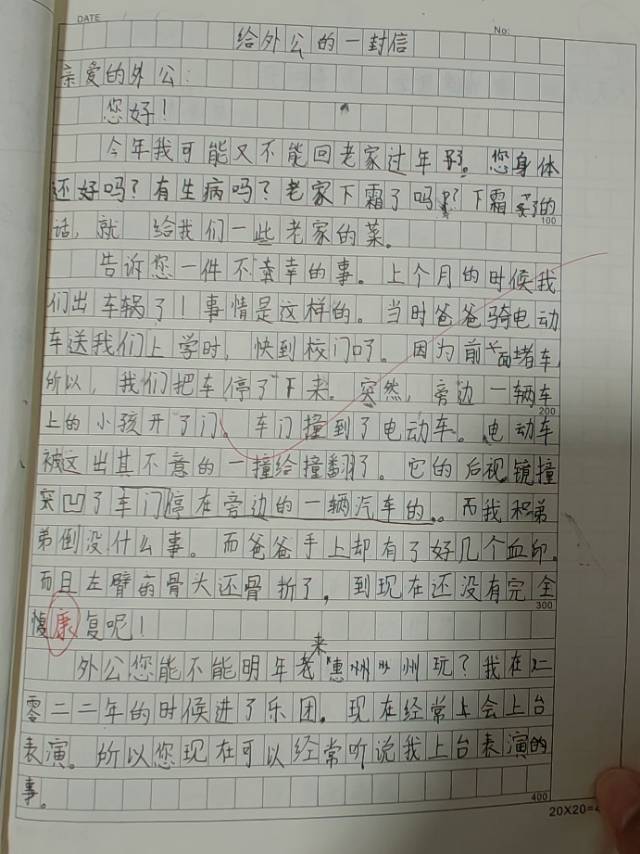 DATE
No:
给外公的一封信
亲爱的外公:
您好!
今年我可能又不能回老家过年了。您身体
还好吗?有生病吗?老家下霜了吗?下霜了的
话,就给我们一些老家的菜。
告诉您一件不幸的事。上个月的时候我
们出车祸了!事情是这样的。当时爸爸骑电动
车送我们上学时,快到校门口了。因为前面堵车,
所以,我们把车停了下来。突然,旁边一辆车
200
上的小孩开了门。车门撞到了电动车。电动车
被这出其不意的一撞给撞翻了。它的后视镜撞
凹了车门停在旁边的一辆汽车的。而我和弟
弟倒没什么事。而爸爸手上却有了好几个血印。
而且左臂的骨头还骨折了,到现在还没有完全
300
康复呢!
外公您能不能明年来惠州玩?我在二
零二二年的时候进了乐团。现在经常会上台
表演。所以您现在可以经常听说我上台表演的
事。
400
100
20X20=4